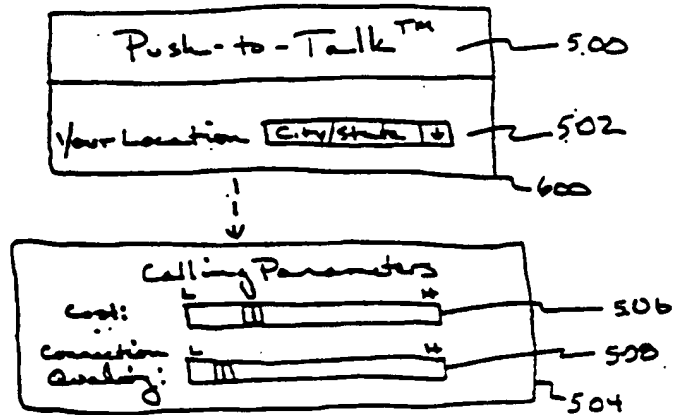 Push-to-Talk™ 500
Your Location City/State 502
600
Calling Parameters
L H
Cost: 506
L H
Connection 508
Quality:
504